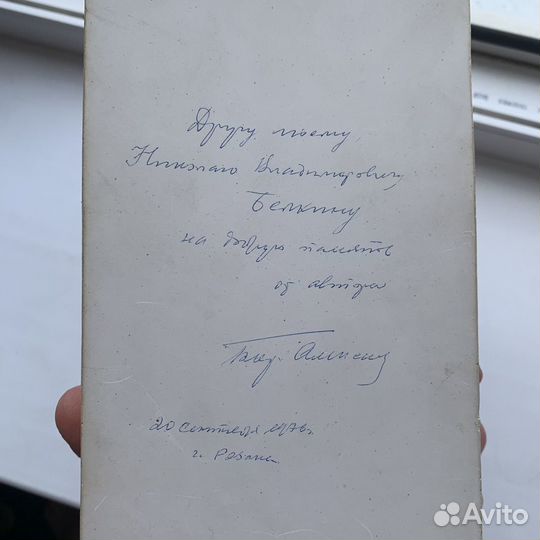 Другу моему,
Николаю Владимировичу
Белкину
на добрую память
от автора
20 сентября 1976 г.
г. Рязань
Avito